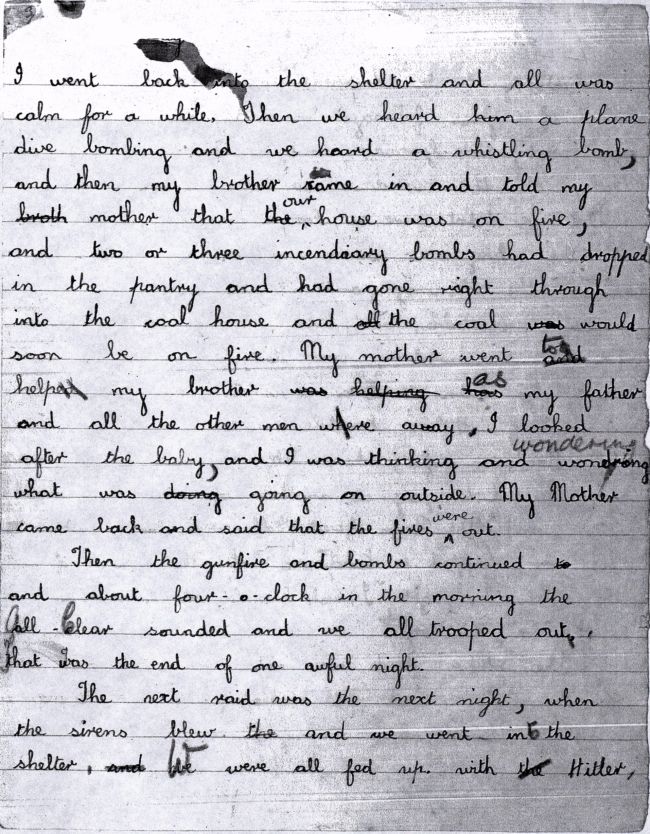 I went back into the shelter and all was
calm for a while. Then we heard him a plane
dive bombing and we heard a whistling bomb,
and then my brother came in and told my
broth mother that the our house was on fire,
and two or three incendiary bombs had dropped
in the pantry and had gone right through
into the coal house and all the coal was would
soon be on fire. My mother went and to
help my brother was helping has as my father
and all the other men where away, I looked
after the baby, and I was thinking and wondring wondering
what was doing going on outside. My Mother
came back and said that the fires were out.
Then the gunfire and bombs continued to
and about four-o-clock in the morning the
all-Clear sounded and we all trooped out,
that was the end of one awful night.
The next raid was the next night, when
the sirens blew the and we went into the
shelter, and We were all fed up with the Hitler,